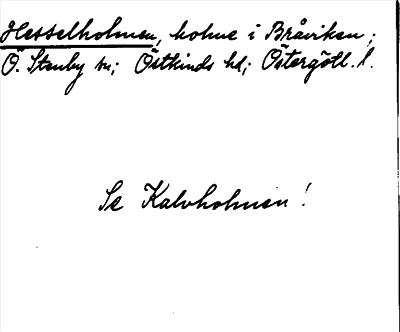 Hesselholmen, holme i Bråviken;
Ö. Stenby sn; Östkinds hd; Östergötl. l.
Se Kalvholmen!